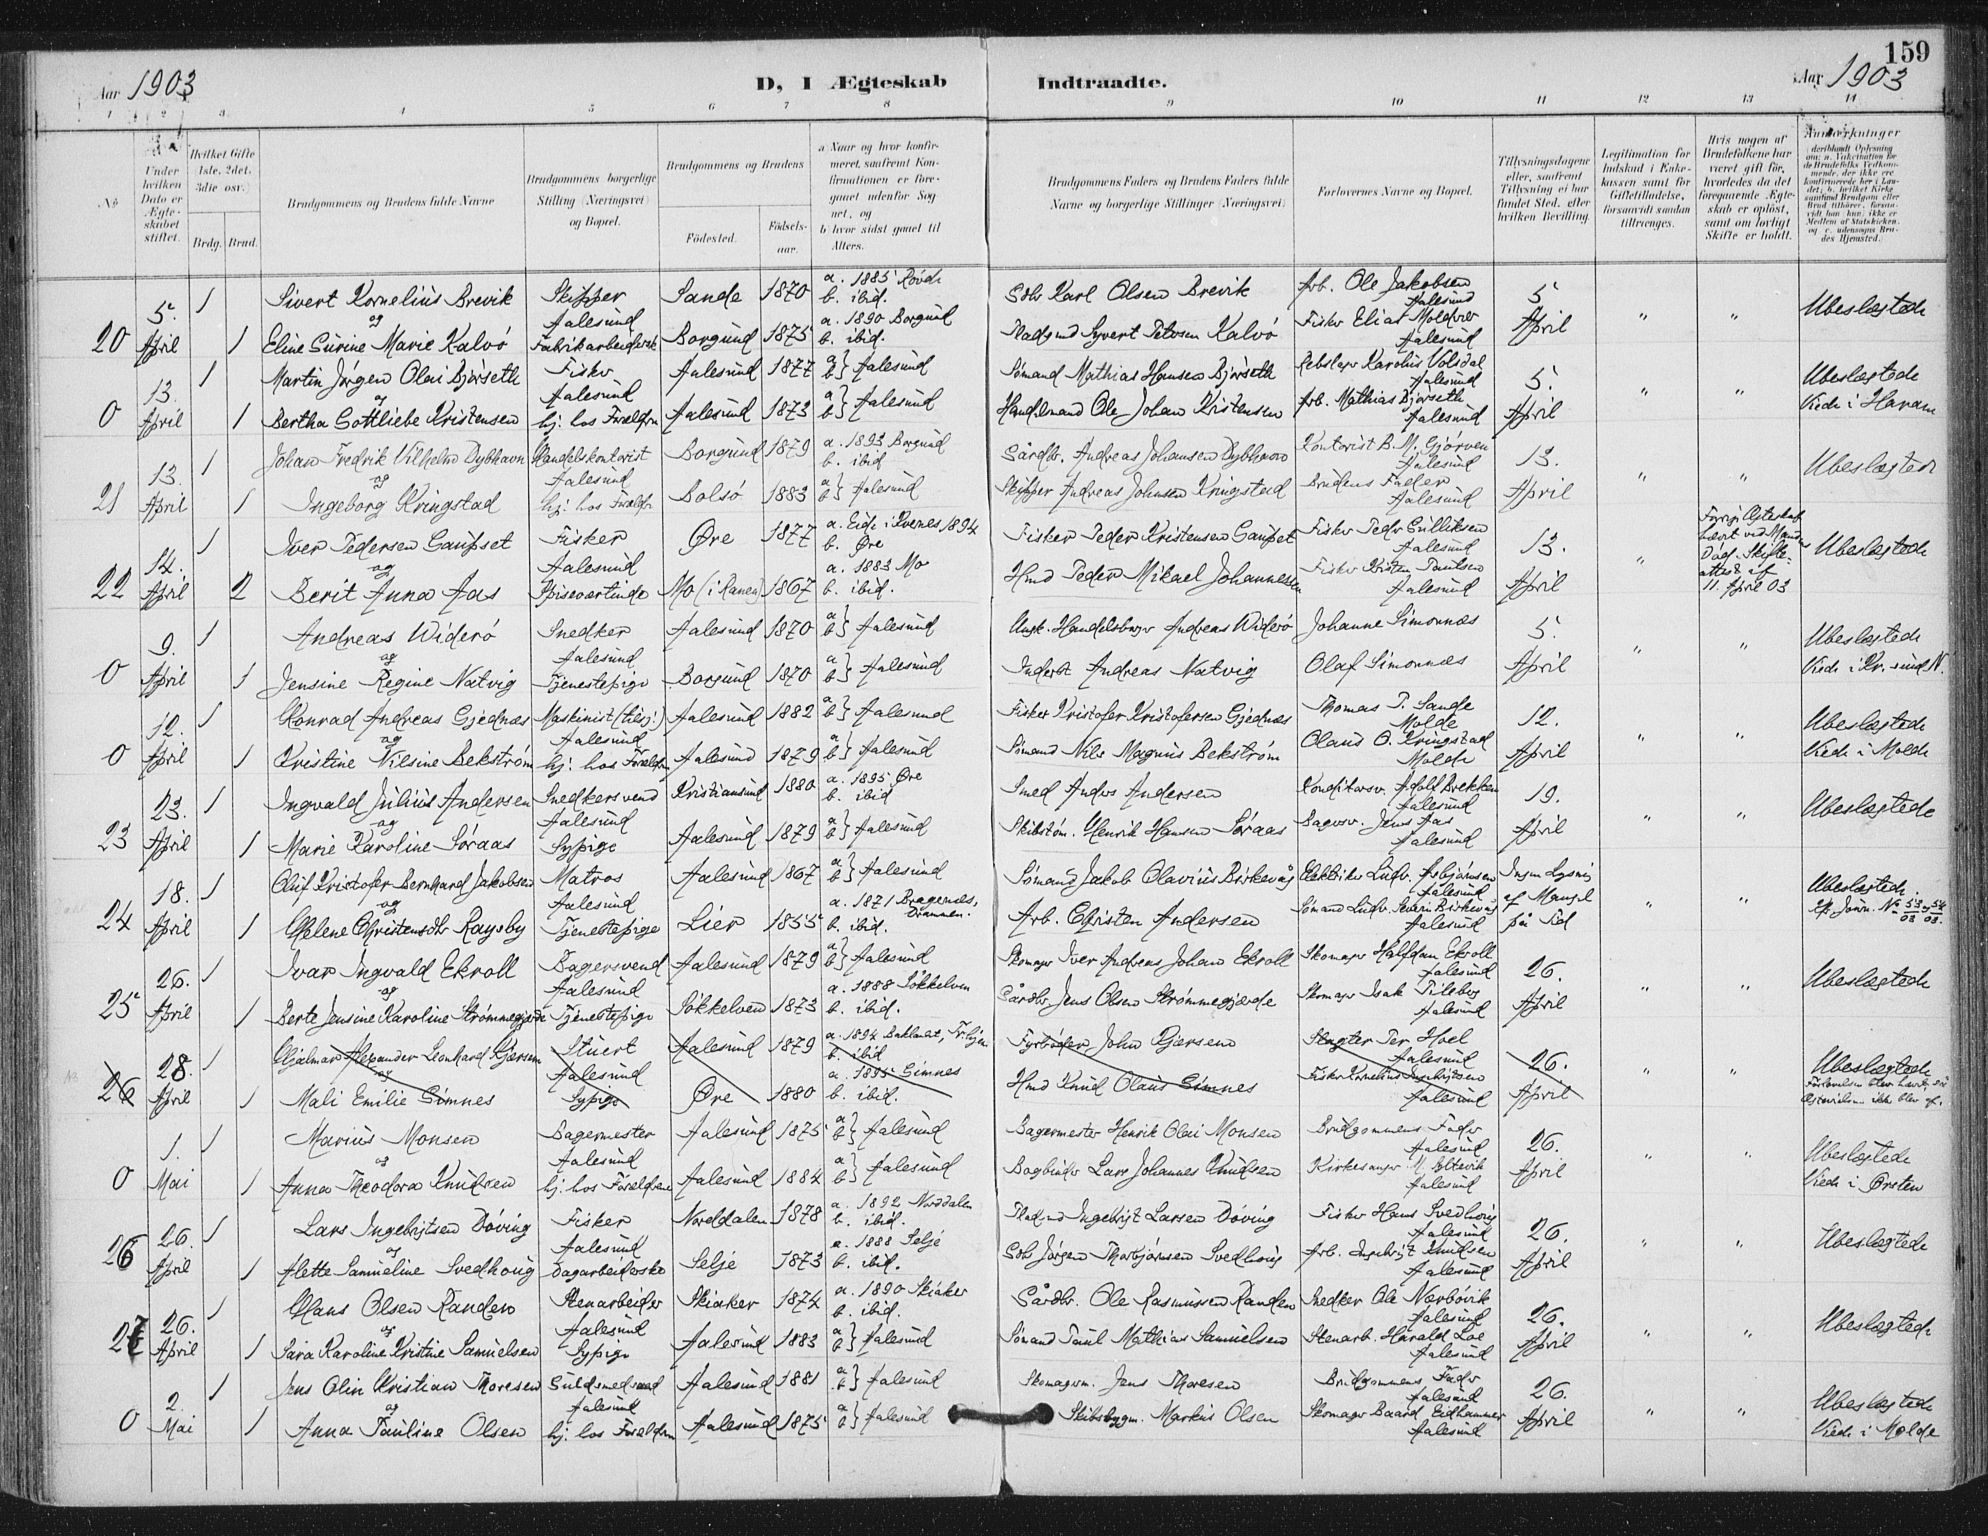 159
Aar 1903
D, I Ægteskab Indtraadte.
Aar 1903
1 2 3 4 5 6 7 8 9 10 11 12 13 14
No
Under hvilken Dato er Ægteskabet stiftet.
Hvilket Gifte 1ste, 2det, 3die osv.
Brdg. Brud.
Brudgommens og Brudens fulde Navne
Brudgommens borgerlige Stilling (Næringsvei) og Bopæl.
Brudgommens og Brudens
Fødested. Fødselsaar.
a Naar og hvor konfirmeret, saafremt Konfirmationen er foregaaet udenfor Sognet, og
b hvor sidst gaaet til Alters.
Brudgommens Faders og Brudens Faders fulde Navne og borgerlige Stillinger (Næringsvei)
Forlovernes Navne og Bopæl.
Tillysningsdagene eller, saafremt Tillysning ei har fundet Sted, efter hvilken Bevilling.
Legitimation for Indskud i Enkekassen samt for Giftetilladelse, forsaavidt saadan tiltrænges.
Hvis nogen af Brudefolkene har været gift før, hvorledes da det foregaaende Ægteskab er opløst, samt om lovligt Skifte er holdt.
Anmærkninger
20 5. April 1 Sivert Kornelius Brevik Skipper Aalesund Sande 1870 a. 1885 Røvde b. ibid. Karl Olsen Brevik Arb. Ole Jakobsen Aalesund 5. April " " Ubeslægtede
og
1 Eline Surine Marie Kalvø Fabrikarbeiderske Borgund 1875 a. 1890 Borgund b. ibid. Pladsmd Syvert Petersen Kalvø Fisker Elias Moldvær Aalesund
0 13. April 1 Martin Jørgen Olai Bjørseth Fisker Aalesund Aalesund 1877 a b} Aalesund Sømand Mathias Hansen Bjørseth Rebslager Karolus Volsdal Aalesund 5. April " " Ubeslægtede
og
1 Bertha Gottliebe Kristensen hj. hos Forældrene Aalesund 1873 a b} Aalesund Handelsmand Ole Johan Kristensen Arb. Mathias Bjørseth Aalesund Viede i Haram
21 13. April 1 Johan Fredrik Vilhelm Dybhavn Handelskontorist Aalesund Borgund 1879 a. 1893 Borgund b. ibid Gårdbr. Andreas Johansen Dybhavn Kontorist B. M. Gjørven Aalesund 13. April " " Ubeslægtede
og
1 Ingeborg Kringstad hj. hos Forældr. Bolsø 1883 a b} Aalesund Skipper Andreas Johnsen Kringstad Brudens Fader Aalesund
22 14. April 1 Iver Pedersen Gaupset Fisker Aalesund Øre 1877 a. Eide i Kvernes 1894 b. Øre Fisker Peder Kristensen Gaupset Fisker Peder Aalesund 13. April " Ubeslægtede
og
2 Berit Anna Aas Spisevertinde Mo (i Ranen) 1867 a. 1883 Mo b. ibid. Hmd Peder Mikael Johannesen Fisker Kristen Paulsen Aalesund
Forrige Ægteskab hævet ved Mandens Død. Skifteattest af 11. April 03
0 9. April 1 Andreas Widerø Snedker Aalesund Aalesund 1870 a b} Aalesund Andreas Widerø Johanne Simonnæs 5. April " " Ubeslægtede
og
1 Jensine Regine Natvig Tjenestepige Borgund 1870 a b} Aalesund Inderst Andreas Natvig Olaf Simonnæs Viede i Kr.sund N.
0 12. April 1 Konrad Andreas Gjednæs Maskinist (tilsj.) Aalesund Aalesund 1882 a b} Aalesund Fisker Kristofer Kristofersen Gjednæs Thomas P. Sande Molde 12. April " " Ubeslægtede
og
1 Kristine Nilsine Bekstrøm hj. hos Forældre Aalesund 1879 a b} Aalesund Sømand Nils Magnus Bekstrøm Olaus O. Kringstad Molde Viede i Molde
23 23. April 1 Ingvald Julius Andersen Snedkersvend Aalesund Kristiansund 1880 a. 1895 Øre b. ibid Smed Anders Andersen Konditorsv. Adolf Brekken Aalesund 19. April " " Ubeslægtede
og
1 Marie Karoline Søraas Sypige Aalesund 1879 a b} Aalesund Skibstøm. Henrik Hansen Søraas Bagersv. Jens Aas Aalesund
24 18. April 1 Oluf Kristofer Bernhard Jakobsen Matros Aalesund Aalesund 1867 a b} Aalesund Sømand Jakob Olavius Birkevåg Elektriker Ludv. Asbjørnsen Aalesund Ingen Lysning af Mangel på Tid " " Ubeslægtede.
og
1 Helene Christensdtr Raysby Tjenestepige Lier 1855 a. 1871 Bragernes, Drammen. b. ibid. Arb. Christen Andersen Sømand Ludv. Severin Birkevåg Aalesund
25 26. April 1 Ivar Ingvald Ekroll Bagersvend Aalesund Aalesund 1879 a b} Aalesund Skomager Iver Andreas Johan Ekroll Skomager Halfdan Ekroll Aalesund 26. April " " Ubeslægtede
og
1 Berte Jensine Karoline Strømmegjerde Tjenestepige Søkkelven 1873 a. 1888 Søkkelven b. ibid. Gårdbr. Jens Olsen Strømmegjærde Skomager Isak Tileberg Aalesund
26 28. April 1 Hjalmar Alexander Leonhard Gjersem Stuert Aalesund Aalesund 1879 a. 1894 Baklandet, Tr.hjem b. ibid Fyrbøder John Gjersem Slagter Per Hoel Aalesund 26. April " " Ubeslægtede
og
1 Mali Emilie Simnes Sypige Øre 1880 a. 1895 Simnes b. ibid. Hmd Knud Olaus Simnes Fisker Kornelius Ingebrigtsen Aalesund Forlovelsen blev hævet, så Ægtevielsen ikke blev af.
0 1. Mai 1 Marius Monsen Bagermester Aalesund Aalesund 1875 a b} Aalesund Bagermester Henrik Olai Monsen Brudgommens Fader Aalesund 26. April " " Ubeslægtede
og
1 Anna Theodora Knudsen hj. hos Forældrene Aalesund 1884 a b} Aalesund Bogbinder Lars Johannes Knudsen Kirkesanger M. Eltevik Aalesund Viede i Ørsten
26 26. April 1 Lars Ingebrigtsen Døving Fisker Aalesund Norddalen 1878 a. 1892 Norddalen b. ibid. Pladsmd Ingebrigt Larsen Døving Fisker Hans Svedhoug Aalesund 26. April " " Ubeslægtede
og
1 Alette Samueline Svedhoug Dagarbeiderske Selje 1873 a. 1888 Selje b. ibid. Jørgen Thorbjørnsen Svedhoug Arb. Ingebrigt Knudsen Aalesund
27 26. April 1 Hans Olsen Randen Stenarbeider Aalesund Skiaker 1874 a. 1890 Skiaker b. ibid. Gårdbr. Ole Rasmussen Randen Snedker Ole Nærbøvik Aalesund 26. April " " Ubeslægtede
og
1 Sara Karoline Kristine Samuelsen Sypige Aalesund 1883 a b} Aalesund Sømand Paul Mathias Samuelsen Stenarb. Harald Loe Aalesund
0 2. Mai 1 Jens Olin Kristian Thoresen Guldsmedsvend Aalesund Aalesund 1881 a b} Aalesund Skomagerm. Jens Thoresen Brudgommens Fader Aalesund 26. April " " Ubeslægtede
og
1 Anna Pauline Olsen hj. hos Forældrene Aalesund 1875 a b} Aalesund Skibsbygm. Markus Olsen Skomager Baard Eidhammer Aalesund Viede i Molde